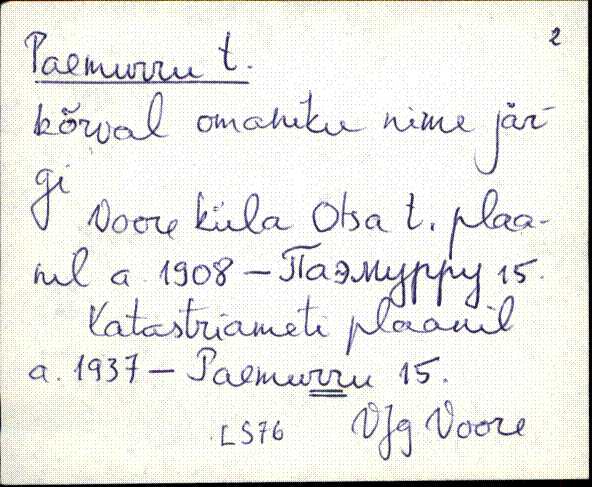 2
Paemurru t.
kõrval omaniku nime jär-
gi
Voore küla Otsa t. plaa-
nil a. 1908 – Паэмурру 15.
Katastriameti plaanil
a. 1937 – Paemurru 15.
LS76 VJg Voore